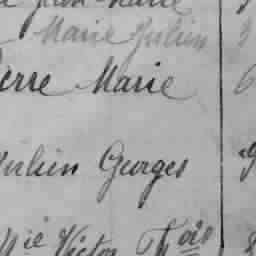 Jean Marie
Marie Julien 3
Pierre Marie 6
Julien Georges 9
Mie Victor Fçois 8